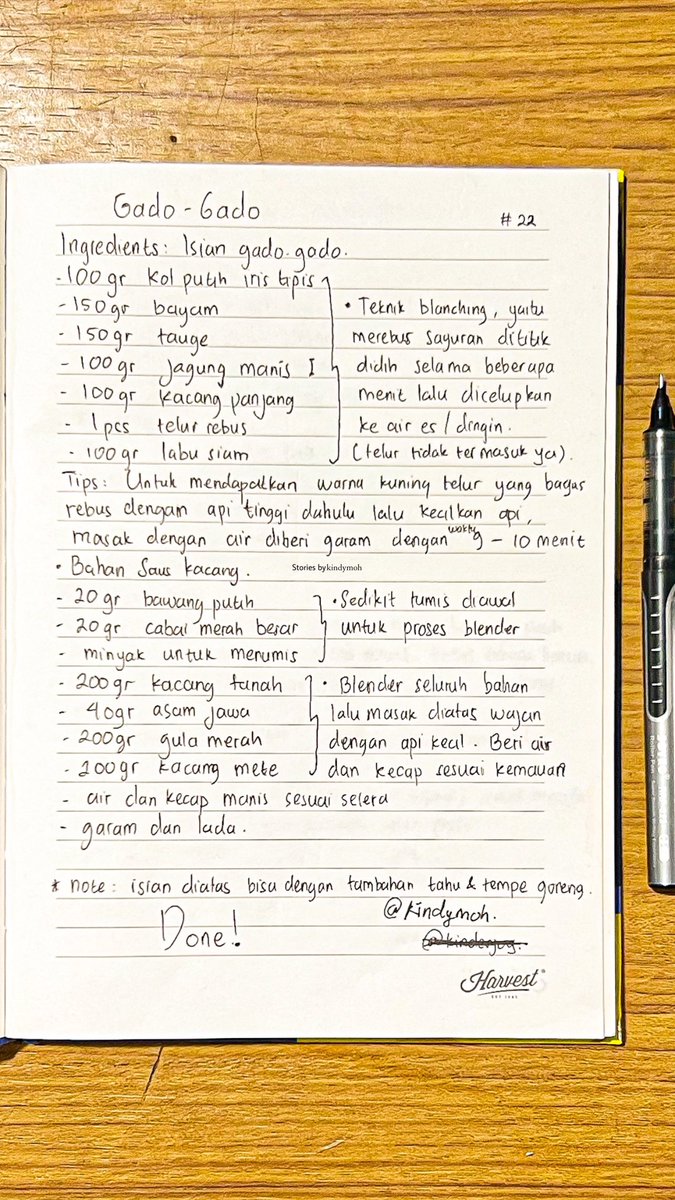 Gado - Gado
# 22
Ingredients: Isian gado-gado.
- 100 gr kol putih iris tipis
- 150 gr bayam
- 150 gr tauge
- 100 gr jagung manis
- 100 gr kacang panjang
- 1 pcs telur rebus
- 100 gr labu siam
• Teknik blanching, yaitu
merebus sayuran dititik
didih selama beberapa
menit lalu dicelupkan
ke air es / dingin.
(telur tidak termasuk ya).
Tips: Untuk mendapatkan warna kuning telur yang bagus
rebus dengan api tinggi dahulu lalu kecilkan api,
masak dengan air diberi garam dengan waktu 9 - 10 menit
• Bahan Saus kacang.
Stories by kindymoh
- 20 gr bawang putih
- 20 gr cabai merah besar
- minyak untuk menumis
• Sedikit tumis diawal
untuk proses blender
- 200 gr kacang tanah
- 40gr asam jawa
- 200gr gula merah
- 200gr kacang mete
• Blender seluruh bahan
lalu masak diatas wajan
dengan api kecil. Beri air
dan kecap sesuai kemauan
- air dan kecap manis sesuai selera
- garam dan lada.
* note: isian diatas bisa dengan tambahan tahu & tempe goreng.
Done!
@kindymoh.
Harvest